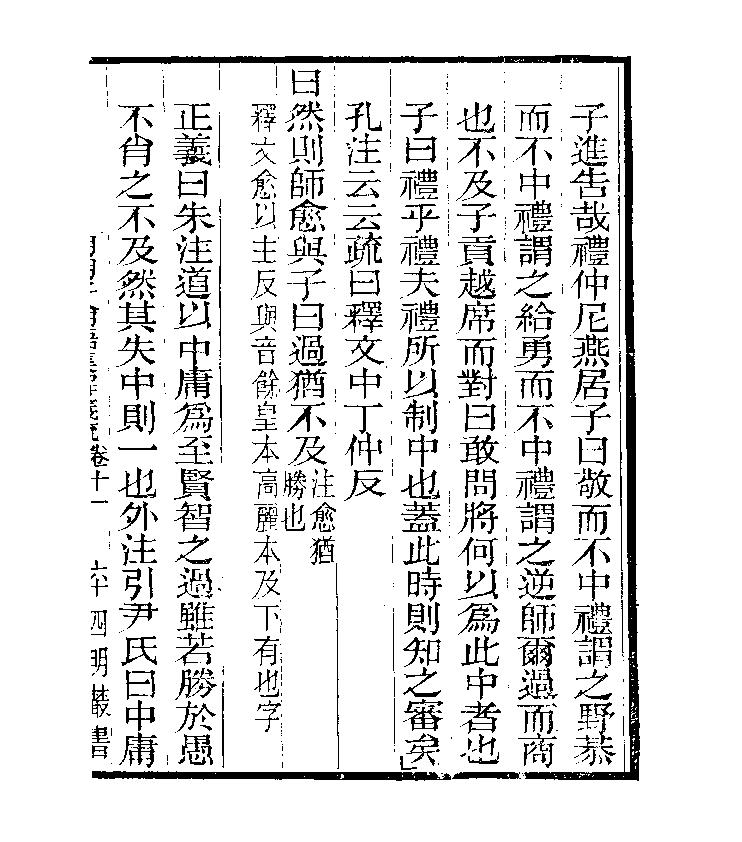 子進告哉禮仲尼燕居子曰敬而不中禮謂之野恭
而不中禮謂之給勇而不中禮謂之逆師爾過而商
也不及子貢越席而對曰敢問將何以爲此中者也
子曰禮乎禮夫禮所以制中也蓋此時則知之審矣
孔注云云疏曰釋文中丁仲反
曰然則師愈與子曰過猶不及注愈猶
勝也
釋文愈以主反與音餘皇本高麗本及下有也字
正義曰朱注道以中庸爲至賢智之過雖若勝於愚
不肖之不及然其失中則一也外注引尹氏曰中庸
卷十一 四明叢書